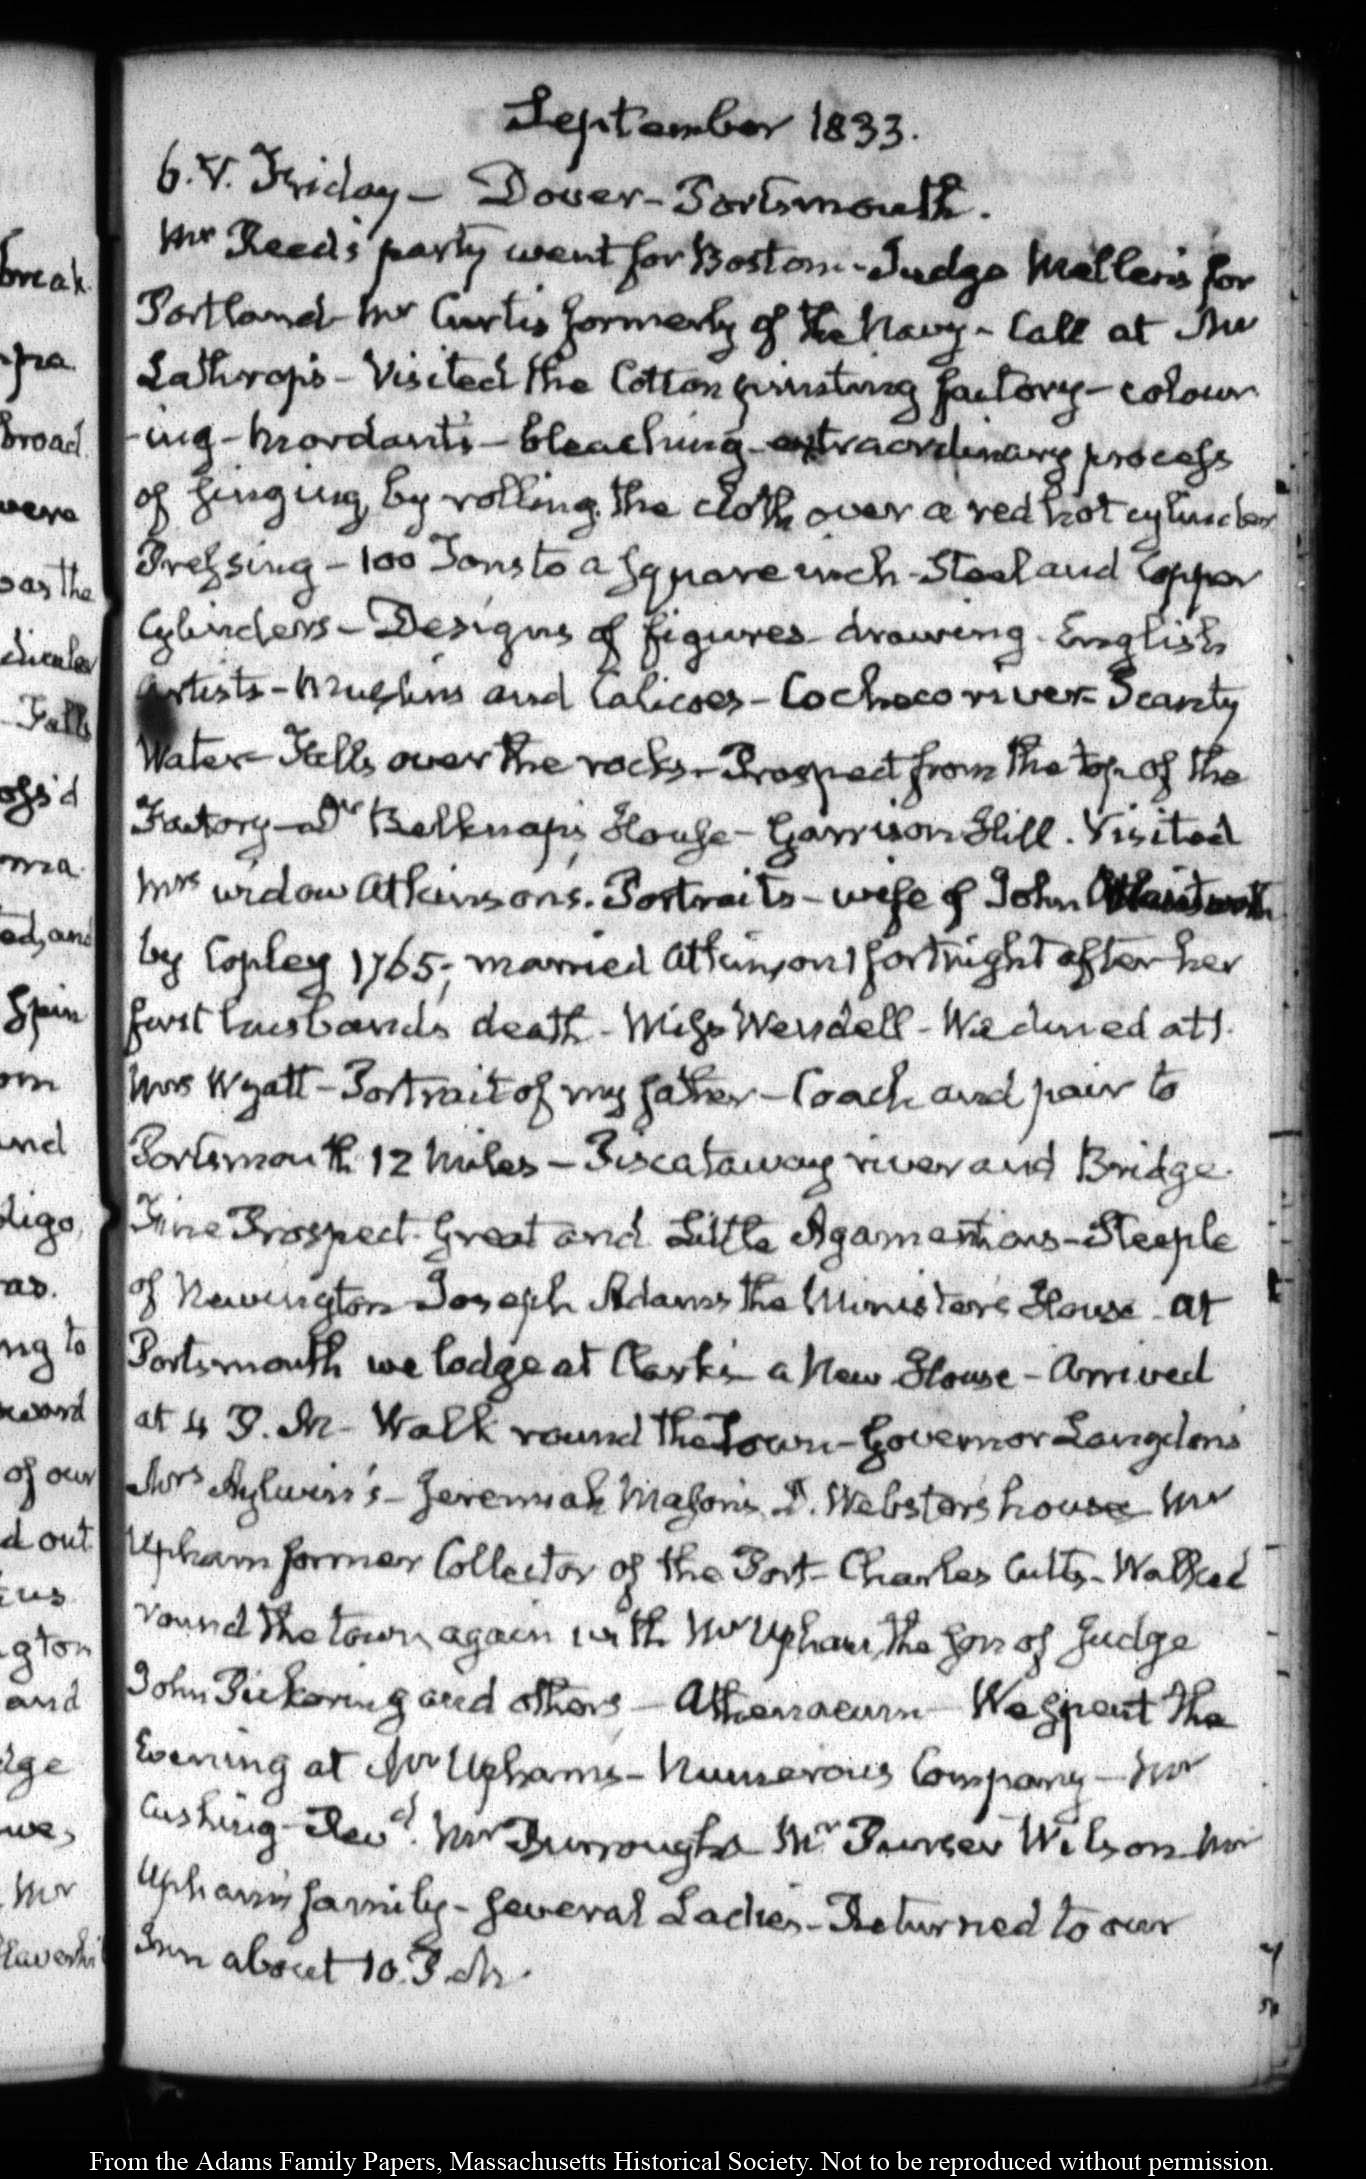 September 1833.
6. V. Friday — Dover — Portsmouth.
Mr Reed's party went for Boston — Judge Mellen's for
Portland — Mr Curtis formerly of the Navy — Call at Mr
Lathrop's — Visited the Cotton printing factory — colour-
-ing — Mordants — bleaching — extraordinary process
of singing, by rolling the cloth over a red hot cylinder
Pressing — 100 Tons to a square inch — Steel and Copper
Cylinders — Designs of figures — drawing — English
artists — Muslins and Calicoes — Cocheco river — Scanty
Water — Falls over the rocks — Prospect from the top of the
Factory — Dr Belknap's House — Garrison Hill. Visited
Mrs widow Atkinson's. Portraits — wife of John
by Copley 1765; married Atkinson 1 fortnight after her
first husband's death — Miss Wendell — We dined at 1.
Mrs Wyatt — Portrait of my father — Coach and pair to
Portsmouth 12 Miles — Piscataway river and Bridge.
Fine Prospect. Great and Little Agamenticus — Steeple
of Newington — Joseph Adams the Minister's House — at
Portsmouth we lodge at Clark's — a New House — Arrived
at 4 P. M — Walk round the Town — Governor Langdon's
Mrs Aylwin's — Jeremiah Mason's, D. Webster's house — Mr
Upham former Collector of the Port — Charles Cutts — Walked
round the town again with Mr Upham, the son of Judge
John Pickering and others — Athenaeum — We spent the
Evening at Mr Upham's — Numerous Company — Mr
Cushing — Revd. Mr Burroughs — Mr. Purser Wilson — Mr
Upham's family — several Ladies — Returned to our
Inn about 10. P. M.
break
pra
broad
were
as the
Falls
ma
ed, and
Spin
om
and
digo,
as.
ng to
of our
d out
us
gton
and
dge
we,
Mr
From the Adams Family Papers, Massachusetts Historical Society. Not to be reproduced without permission.